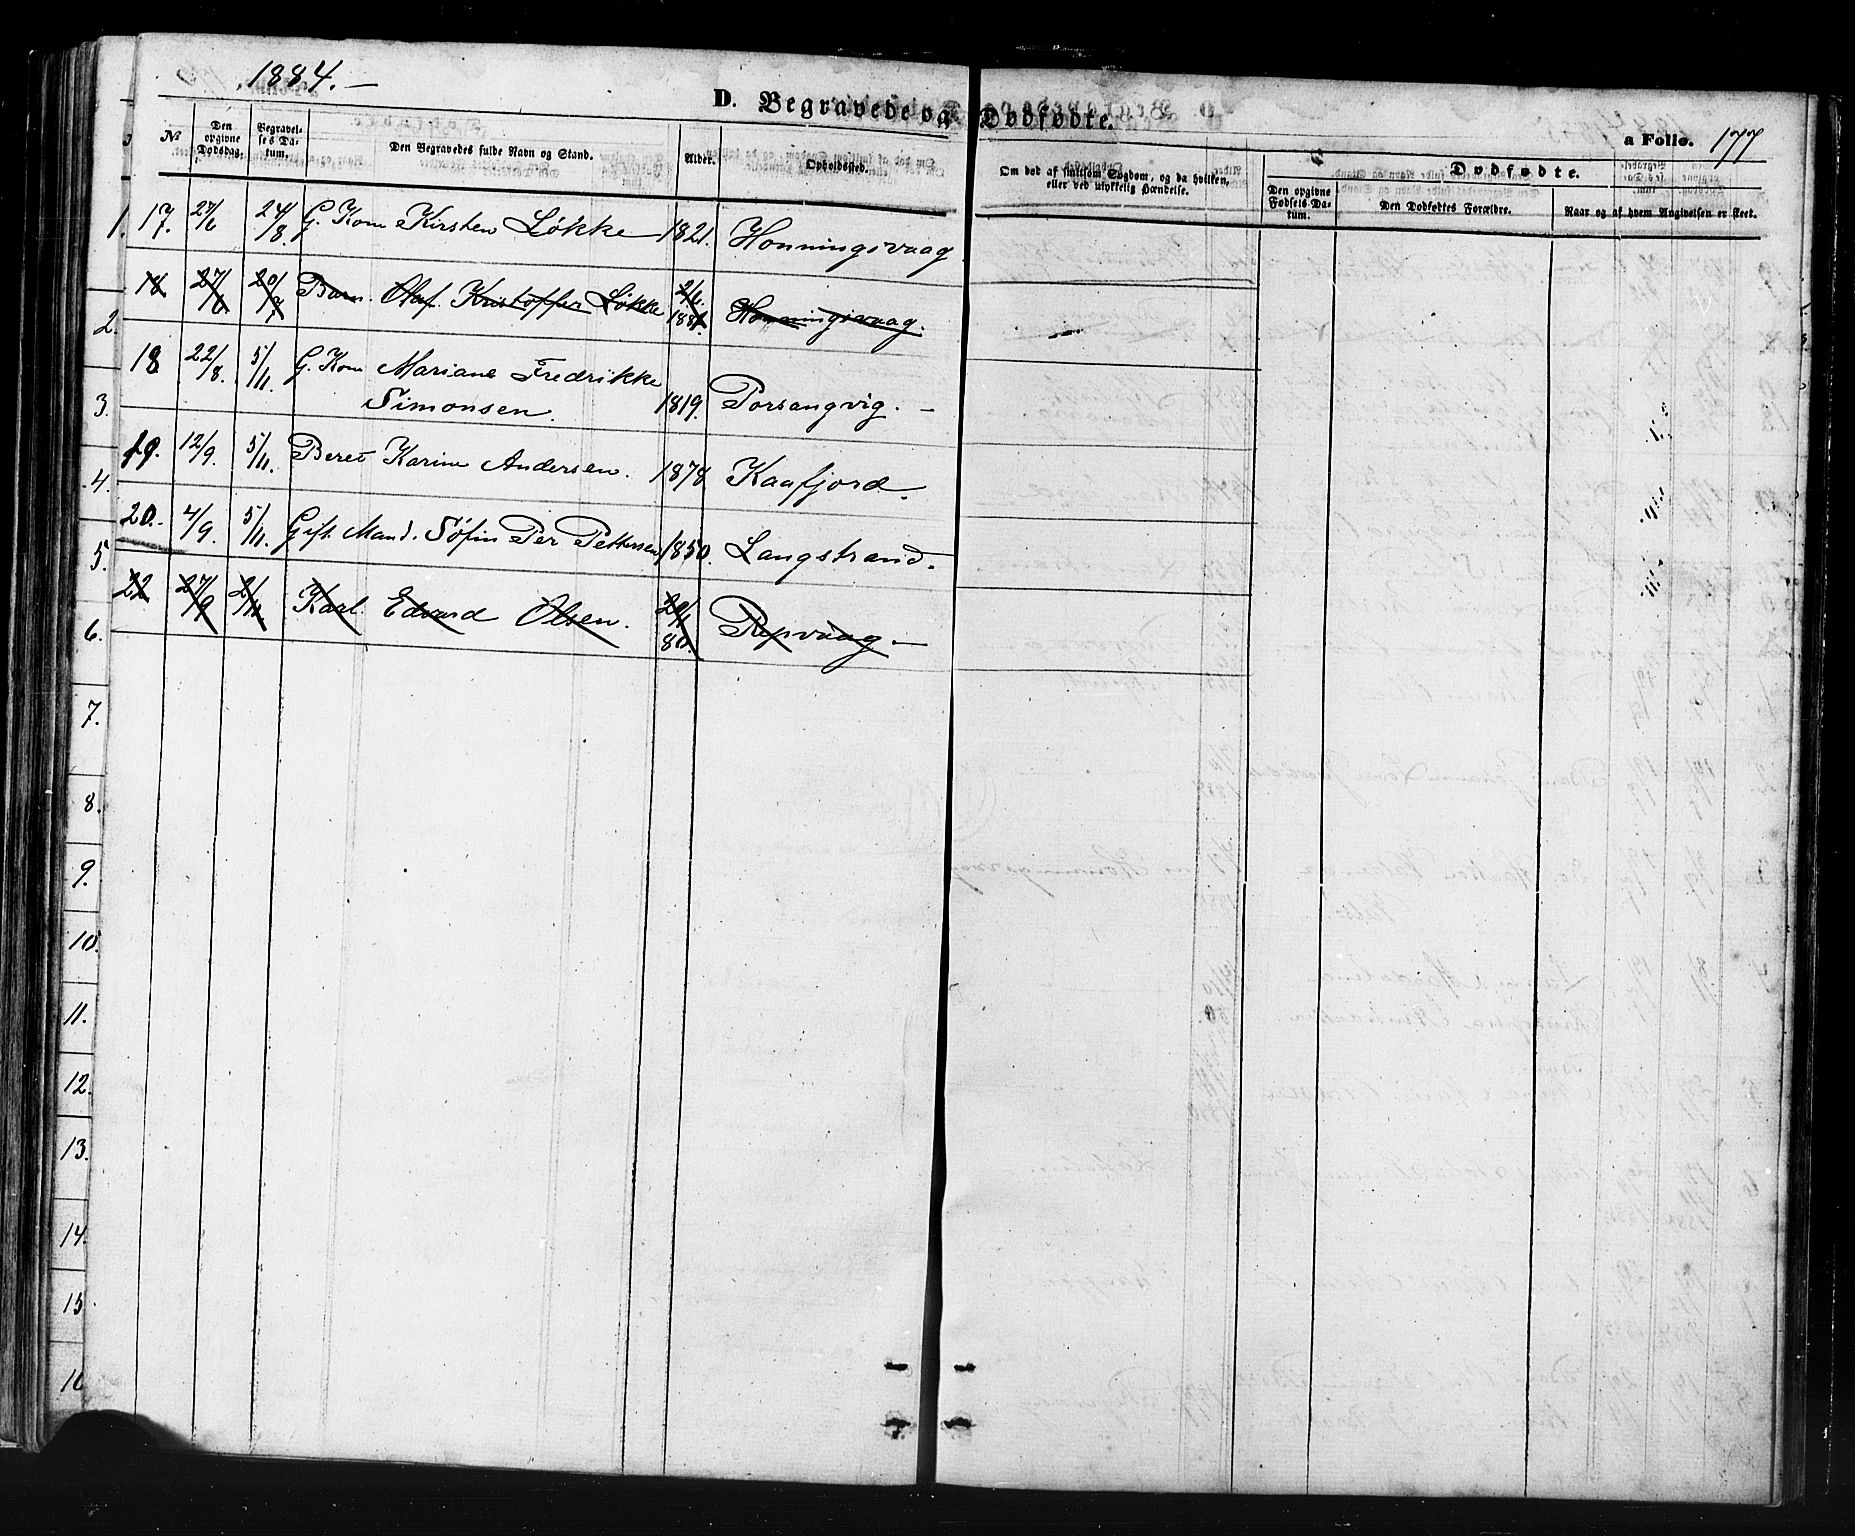 1884. –
D. Begravede og Dødfødte.
a Folio. 177
№
Den opgivne Dødsdag.
Begravelses Datum.
Den Begravedes fulde Navn og Stand.
Alder.
Opholdssted.
Om død af smitsom Sygdom, og da hvilken, eller ved ulykkelig Hændelse.
Dødfødte.
Den opgivne Fødsels Datum.
Den Dødfødtes Forældre.
Naar og af hvem Angivelsen er skeet.
1. 17. 27/6 24/8. G. Kone Kirsten Løkke 1821. Honningsvaag
18 27/6 20/7 Barn. Olaf Kristoffer Løkke 2/6. 1881. Honningsvaag.
2.
18 22/8. 5/11. G. Kone Mariane Fredrikke
3. Simonsen. 1819. Porsangvig. –
19. 12/9. 5/11. Beret Karine Andersen. 1878 Kaafjord.
4.
20. 4/9. 5/11. Gift Mand. Søfin Per Pettersen 1850. Langstrand.
5.
22 27/9 2/11 Karl Edvard Olsen. 29/1 80. Repvaag –
6.
7.
8.
9.
10.
11.
12.
13.
14.
15
16